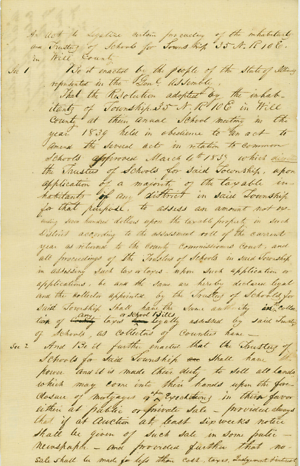 An Act to legalize certain proceedings of the inhabitants
and Trustees of Schools for Township 35 N. R 10 E.
in Will County
Sec 1. Be it enacted by the people of the State of Illinois
represented in the Genl Assembly
That the Resolution adopted by the inhab-
itants of Township 35 N. R 10 E in Will
County at their annual School meeting in the
year 1839 held in obedience to an act to
amend the several acts in relation to common
Schools approved March 4 1837, which
the Trustees of Schools for Said Township, upon
application of a majority of the taxable in-
habitants of any District in Said Township
for that purpose, to assess an amount not ex-
dollars upon the taxable property in such
District according to the assessment roll of the current
year as returned to the County Commissioners Court, and
all proceedings of the Trustees of Schools in Said Township
in assessing such taxes upon such application or
applications, be and the same are hereby declared legal
and the collector appointed by the Trustees of Schools for
Said Township Shall have the Same authority in the collec
tion of any School Bills legally assessed by Said Trustees
of Schools, as Collectors of Counties have
Sec 2. And Be it further enacted that the Trustees of
Schools for Said Township Shall have
power and it is made their duty to sell all lands
which may come into their hands upon the fore
closure of mortgages in their favor
either at public or private Sale - provided always
that if at Auction at least six weeks notice
Shall be given of such Sale in Some public
newspaper - and provided further that no
sale shall be made for less than cost